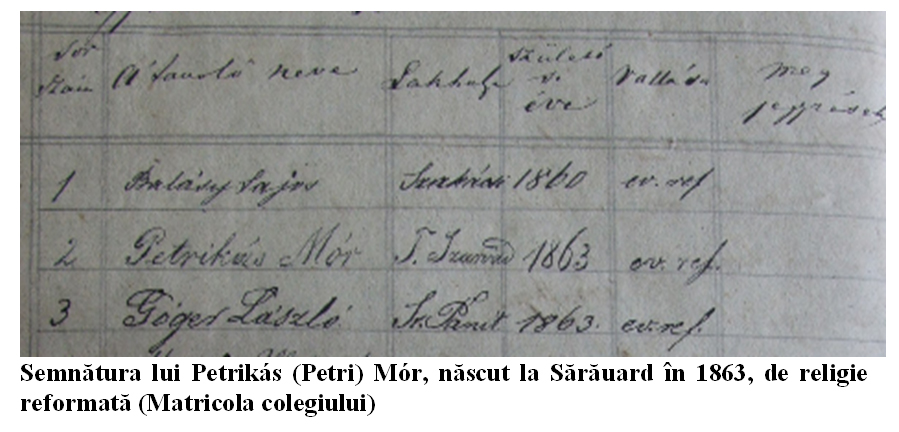 Sor szám A' tanuló neve Lakhelye Születési éve Vallása meg jegyzések
1 Balásy Lajos 1860 ev. ref
2 Petrikás Mór T. Szarvad 1863 ev. ref.
3 Góger László Sz. Pánit 1863. ev. ref.
Semnătura lui Petrikás (Petri) Mór, născut la Sărăuard în 1863, de religie
reformată (Matricola colegiului)